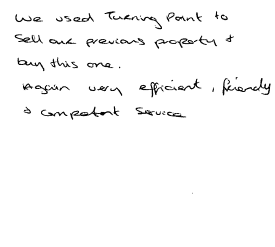 We used Turning Point to
sell our previous property &
buy this one.
Again very efficient, friendly
& competent service